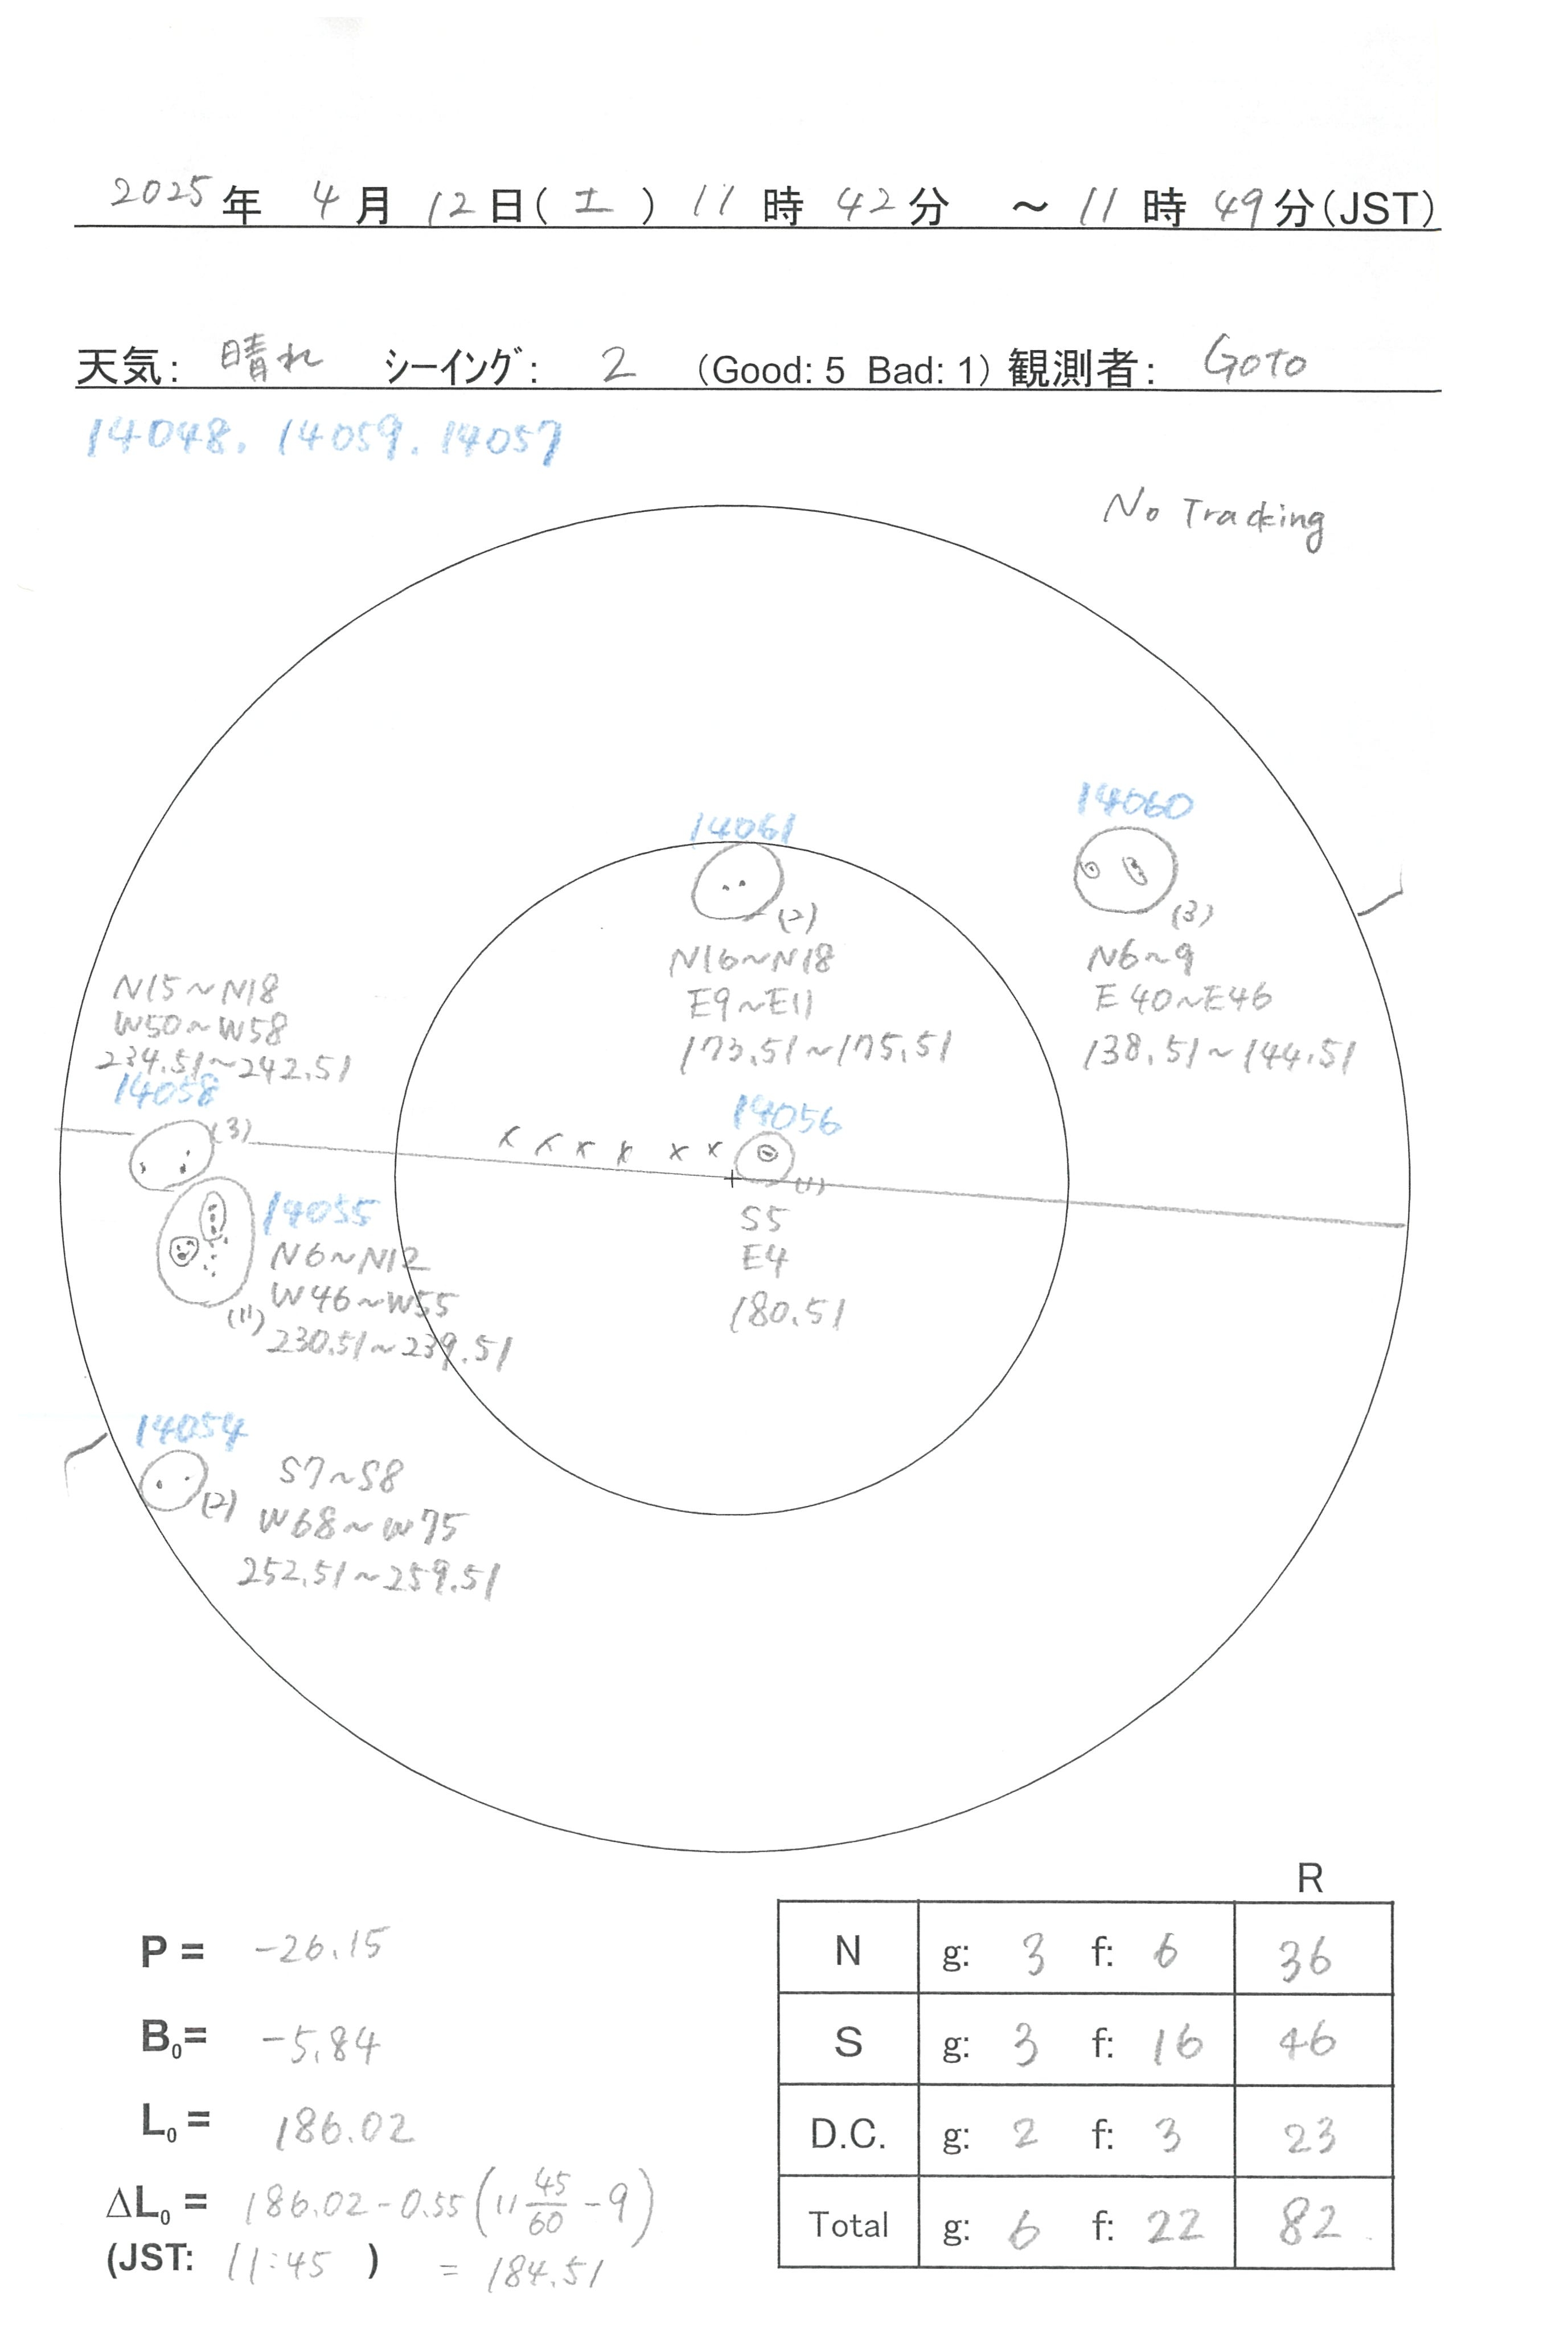 2025年 4月 12日(土) 11時 42分 ～ 11時 49分(JST)
天気: 晴れ シーイング: 2 (Good: 5 Bad: 1) 観測者: Goto
14048. 14059. 14057
No Tracking
14060
(3)
N6~9
E40~E46
138.51~144.51
14061
(2)
N16~N18
E9~E11
173.51~175.51
N15~N18
W50~W58
234.51~242.51
14058
(3)
14056
(1)
S5
E4
180.51
14055
N6~N12
W46~W55
(11)
230.51~239.51
14054
(2)
S7~S8
W68~W75
252.51~259.51
R
N g: 3 f: 6 36
S g: 3 f: 16 46
D.C. g: 2 f: 3 23
Total g: 6 f: 22 82
P = -26.15
B₀= -5.84
L₀ = 186.02
ΔL₀ = 186.02-0.55(11 45/60 -9)
(JST: 11:45 ) = 184.51